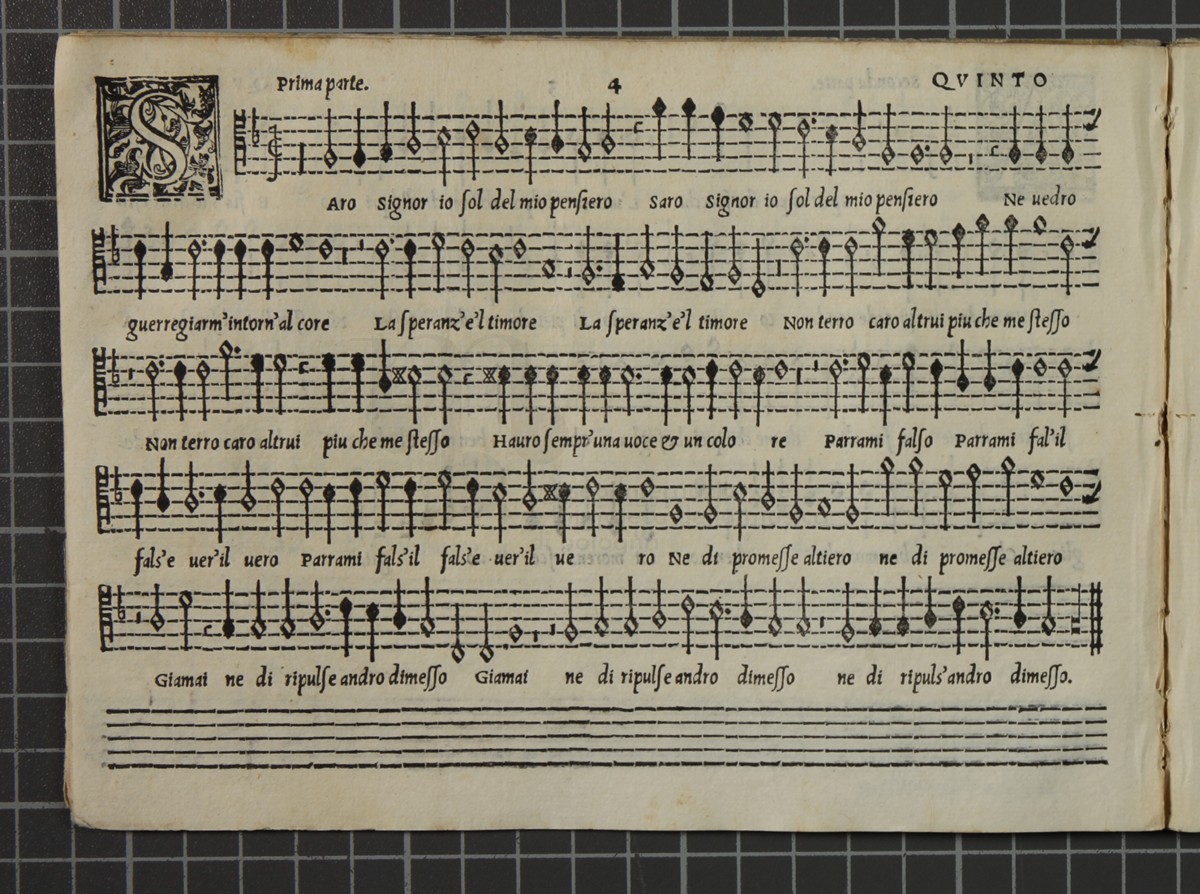 Prima parte. 4 QVINTO
SAro Signor io sol del mio pensiero Saro Signor io sol del mio pensiero Ne uedro
guerregiarm'intorn'al core La speranz'e'l timore La speranz'e'l timore Non terro caro altrui piu che me stesso
Non terro caro altrui piu che me stesso Hauro sempr'una uoce & un colo re Parrami falso Parrami fal'il
fals'e uer'il uero Parrami fals'il fals'e uer'il ue ro Ne di promesse altiero ne di promesse altiero
Giamai ne di ripulse andro dimesso Giamai ne di ripulse andro dimesso ne di ripuls'andro dimesso.